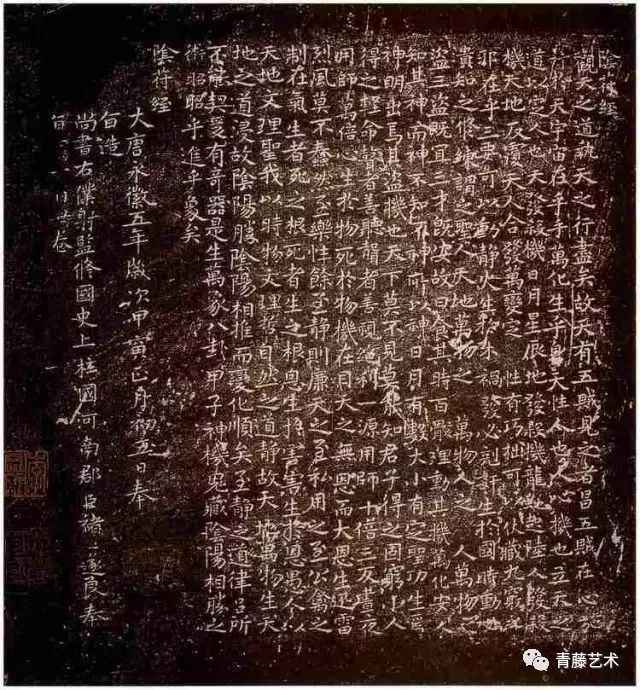 陰符經
觀天之道執天之行盡矣故天有五賊見之者昌五賊在心施
行於天宇宙在乎手萬化生乎身天性人也人心機也立天之
道以定人也天發殺機日月星辰地發殺機龍蛇起陸人發殺
機天地反覆天人合發萬變定性有巧拙可以伏藏九竅之
邪在乎三要可以動靜火生於木禍發必剋姧生於國時動必
潰知之修鍊謂之聖人天地萬物之萬物人之人萬物之
盜三盜既宜三才既安故曰食其時百骸理動其機萬化安人
知其神而神不知不神所以神日月有數大小有定聖功生焉
神明出焉其盜機也天下莫不見莫能知君子得之固窮小人
得之輕命瞽者善聽聾者善視絕利源用師十倍三反晝夜
用師萬倍心生於物死於物機在目天之無恩而大恩生迅雷
烈風莫不蠢然至樂性餘至靜則廉天之至私用之至公禽之
制在氣生者死之根死者生之根恩生於害害生於恩愚人以
天地文理聖我以時物文理哲自然之道靜故天地萬物生天
地之道浸故陰陽勝陰陽相推而變化順矣至靜之道律呂所
不能契爰有奇器是生萬象八卦甲子神機鬼藏陰陽相勝之
術昭昭乎進乎象矣
陰符經
大唐永徽五年歲次甲寅正月初五日奉
旨造
尚書右僕射監修國史上柱國河南郡臣褚遂良奉
旨
青藤艺术